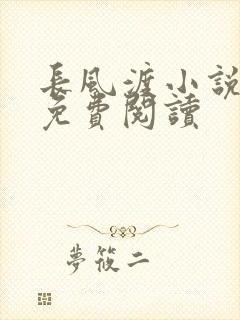 長風渡小說
免費閱讀
夢筱二